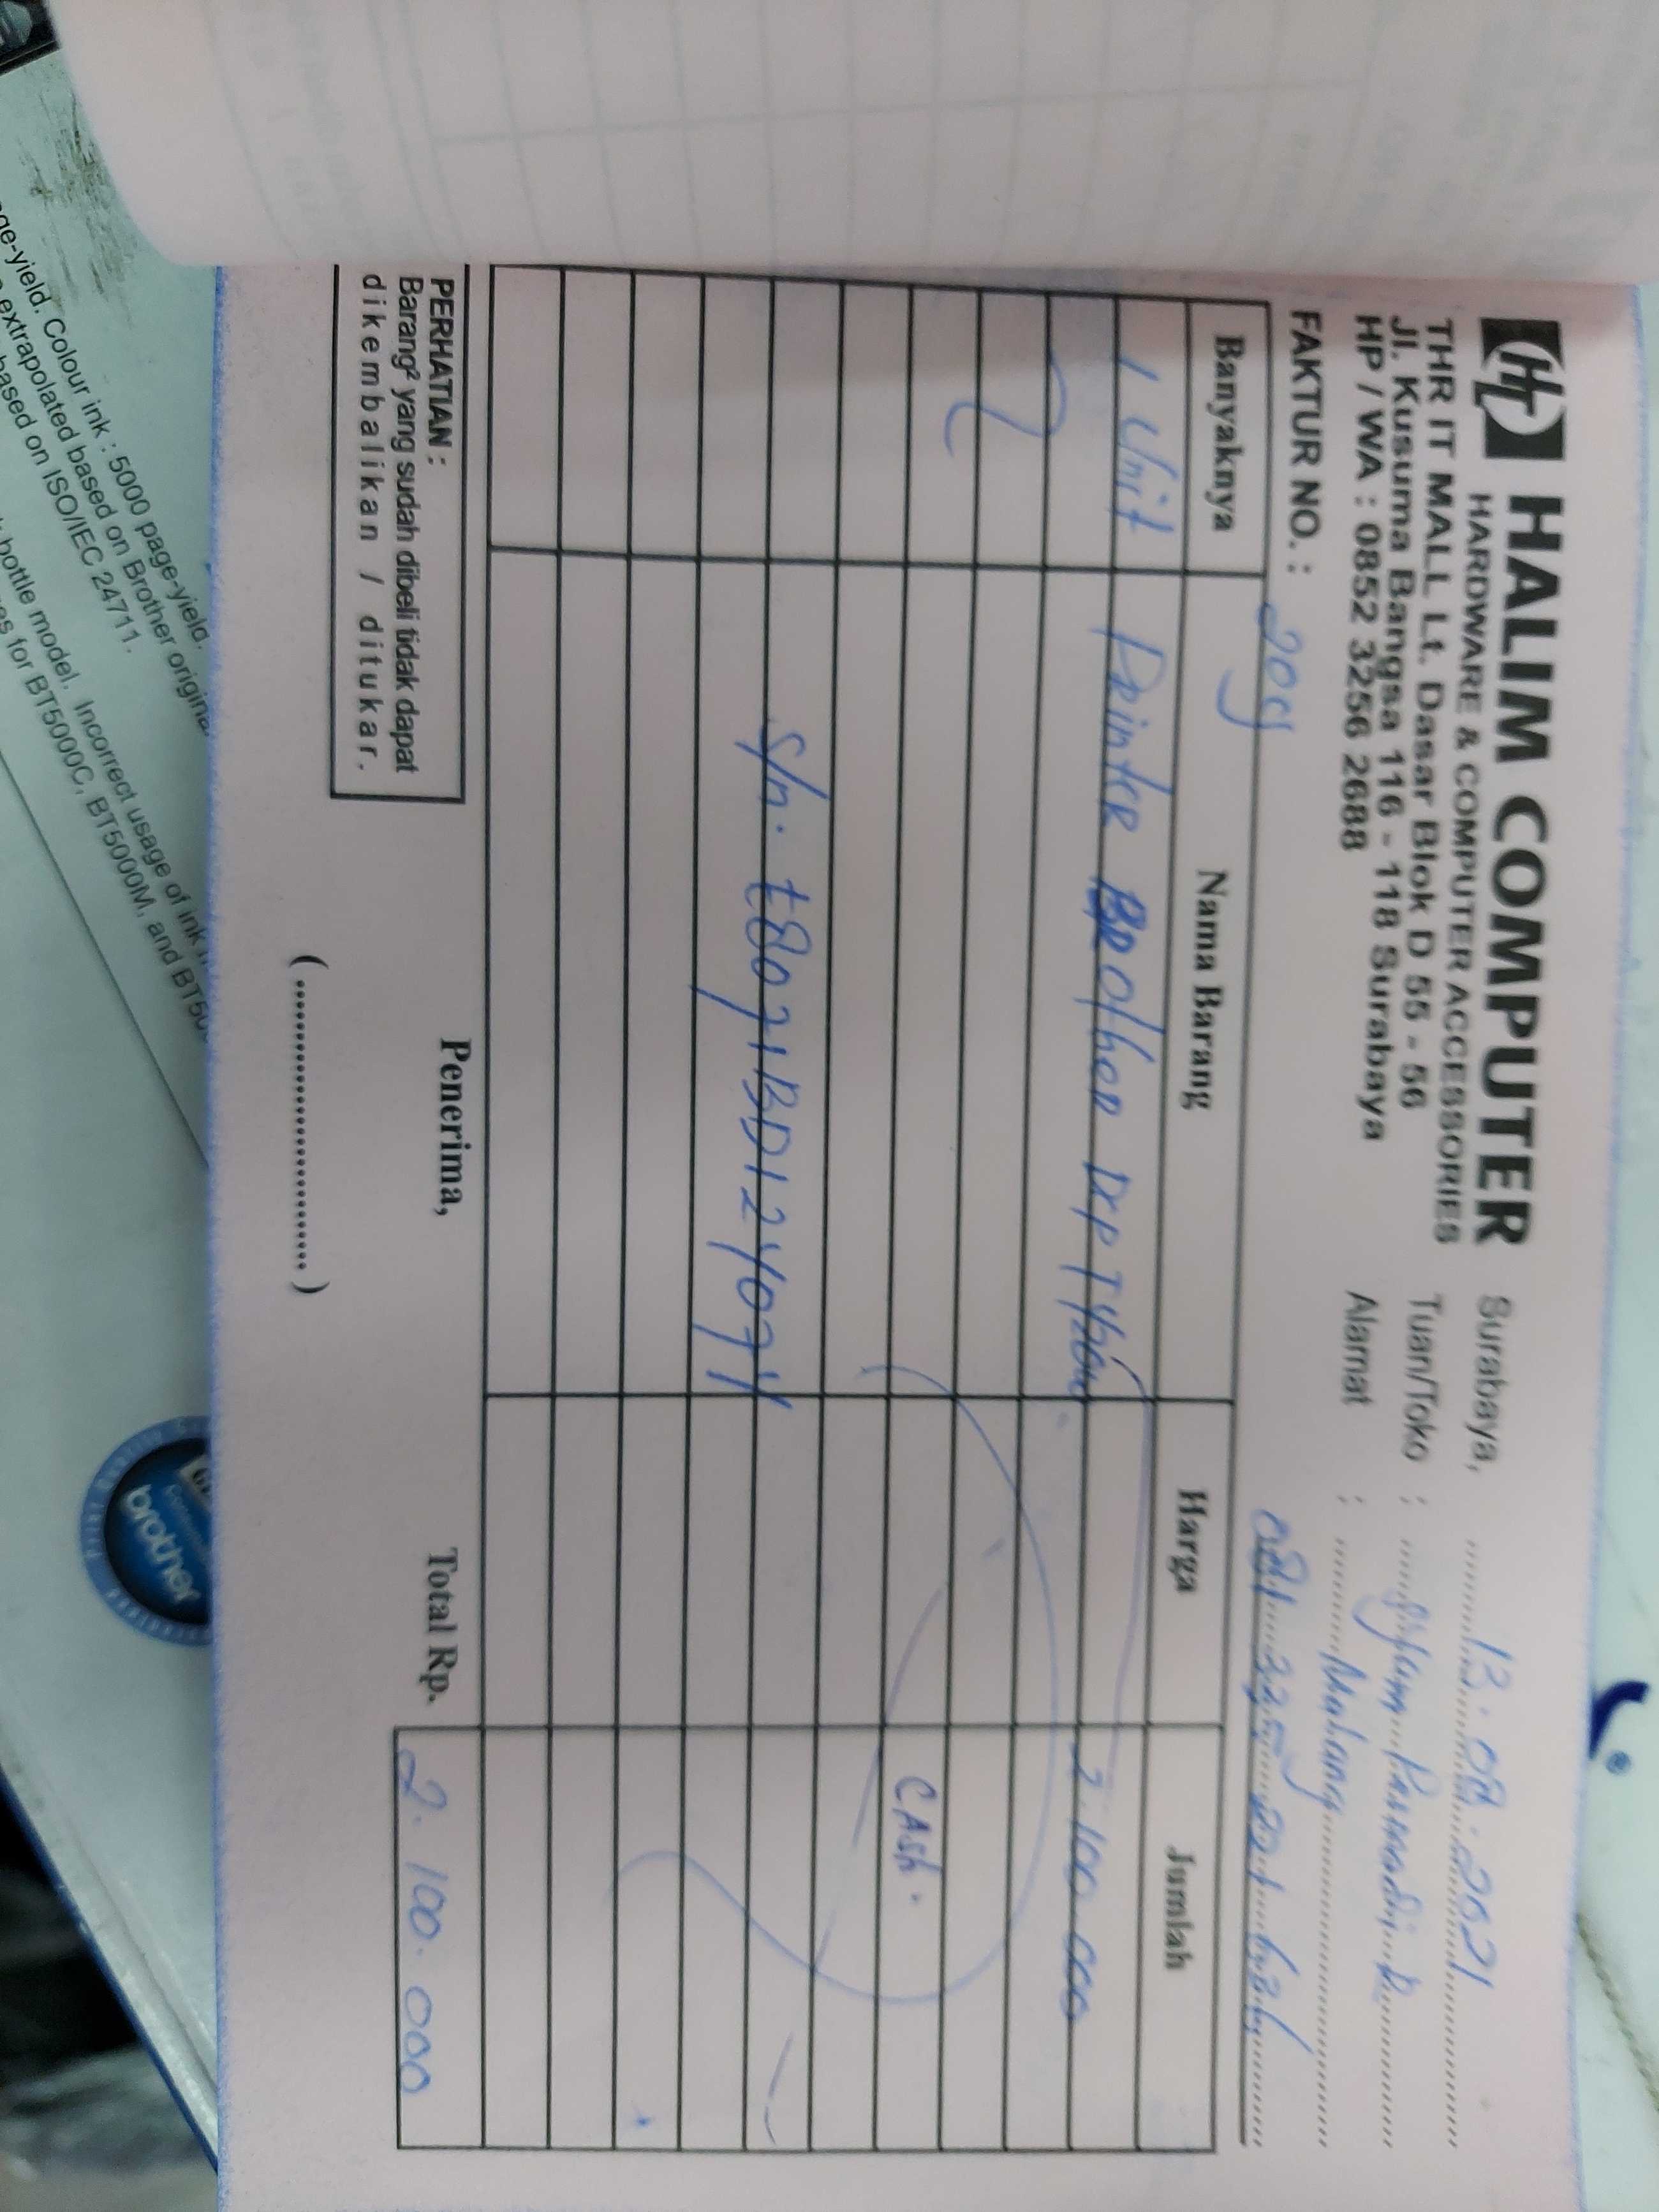 HT HALIM COMPUTER
HARDWARE & COMPUTER ACCESSORIES
THR IT MALL Lt. Dasar Blok D 55 - 56
Jl. Kusuma Bangsa 116 - 118 Surabaya
HP / WA : 0852 3256 2688
Surabaya, 13.08.2021
Tuan/Toko :
Alamat : Malang
FAKTUR NO. :
Banyaknya Nama Barang Harga Jumlah
1 Unit Printer Brother DCP T420W 2.100.000
CASH.
S/n.
PERHATIAN :
Barang² yang sudah dibeli tidak dapat
dikembalikan / ditukar.
Penerima,
(........................)
Total Rp. 2.100.000
age-yield. Colour ink : 5000 page-yield.
extrapolated based on Brother origina
based on ISO/IEC 24711.
bottle model. Incorrect usage of ink
es for BT5000C, BT5000M, and BT50
brother